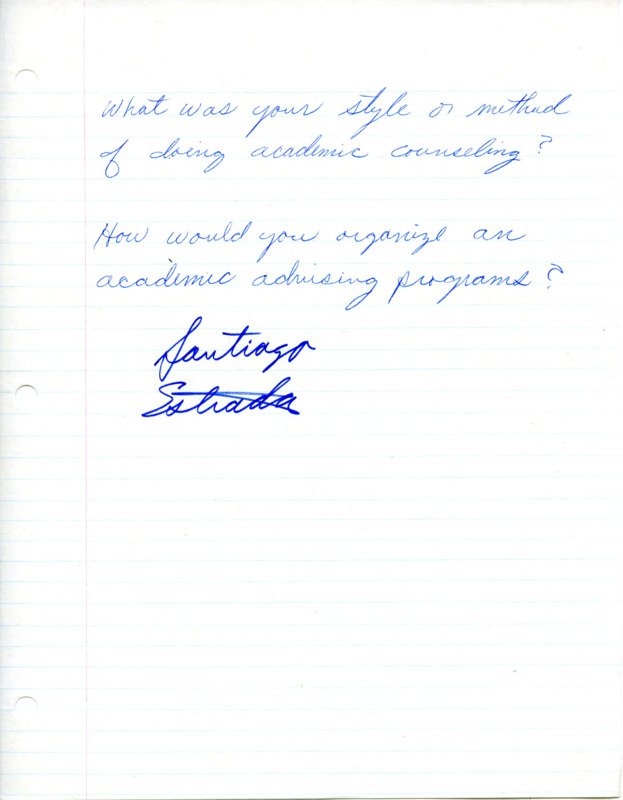 What was your style or method
of doing academic counseling?
How would you organize an
academic advising programs?
Santiago
Estrada